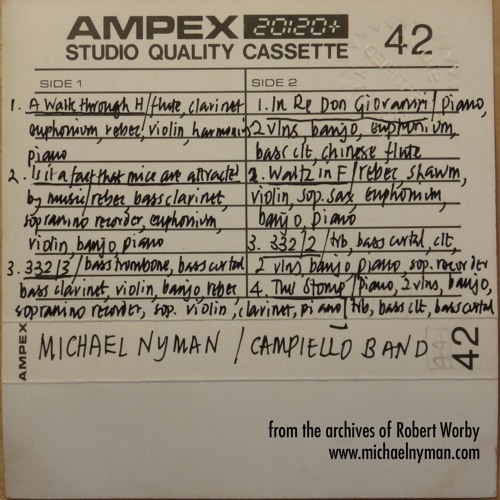 AMPEX 20:20+
STUDIO QUALITY CASSETTE
42
SIDE 1
1. A Walk through H / flute, clarinet
euphonium, rebec, violin, harmonis
piano
2. Is it a fact that mice are attracted
by music / rebec, bass clarinet,
sopranino recorder, euphonium,
violin, banjo, piano
3. 332/3 / bass trombone, bass curtal
bass clarinet, violin, banjo, rebec
sopranino recorder, sop. violin, clarinet, piano
SIDE 2
1. In Re Don Giovanni / piano,
2 vlns, banjo, euphonium,
bass clt, chinese flute
2. Waltz in F / rebec, shawm,
violin, sop. sax, euphonium,
banjo, piano
3. 332/2 / trb, bass curtal, clt,
2 vlns, banjo, piano, sop. recorder
4. The Stomp / piano, 2 vlns, banjo,
trb, bass clt, bass curtal
AMPEX
MICHAEL NYMAN / CAMPIELLO BAND
42
from the archives of Robert Worby
www.michaelnyman.com